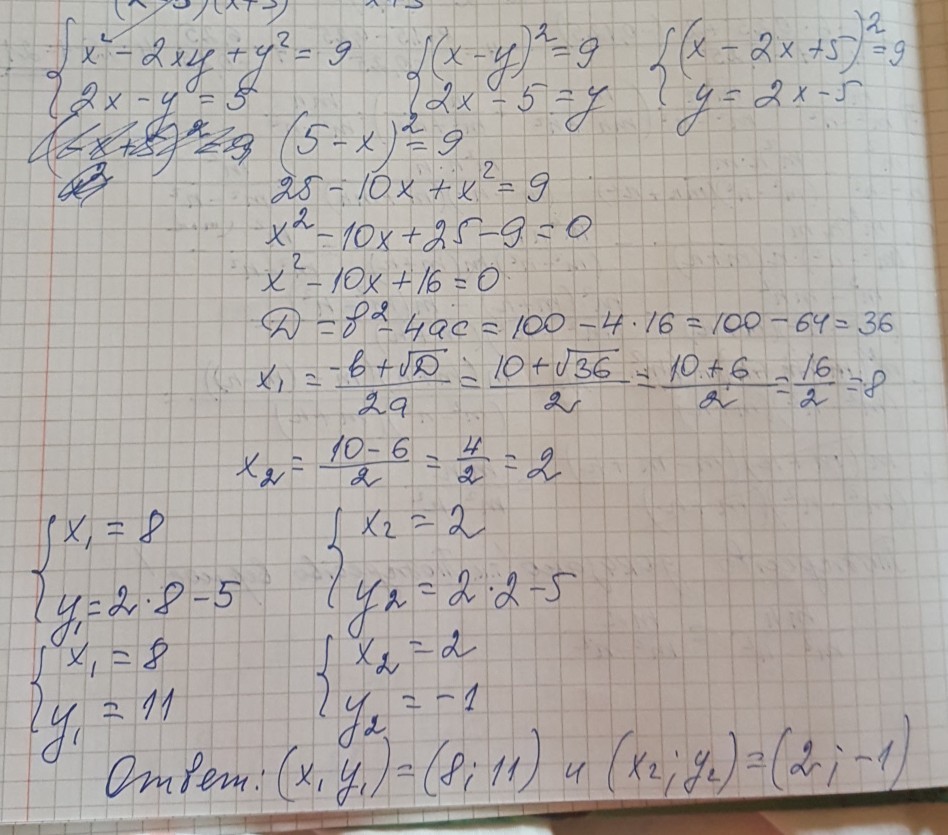 {x² - 2xy + y² = 9 {(x-y)² = 9 {(x - 2x+5)² = 9
{2x - y = 5 {2x - 5 = y {y = 2x - 5
(5-x)² = 9
25 - 10x + x² = 9
x² - 10x + 25 - 9 = 0
x² - 10x + 16 = 0
D = b² - 4ac = 100 - 4·16 = 100 - 64 = 36
x₁ = (-b + √D)/2a = (10 + √36)/2 = (10 + 6)/2 = 16/2 = 8
x₂ = (10 - 6)/2 = 4/2 = 2
{x₁ = 8 {x₂ = 2
{y₁ = 2·8 - 5 {y₂ = 2·2 - 5
{x₁ = 8 {x₂ = 2
{y₁ = 11 {y₂ = -1
Ответ: (x₁ y₁) = (8; 11) и (x₂; y₂) = (2; -1)